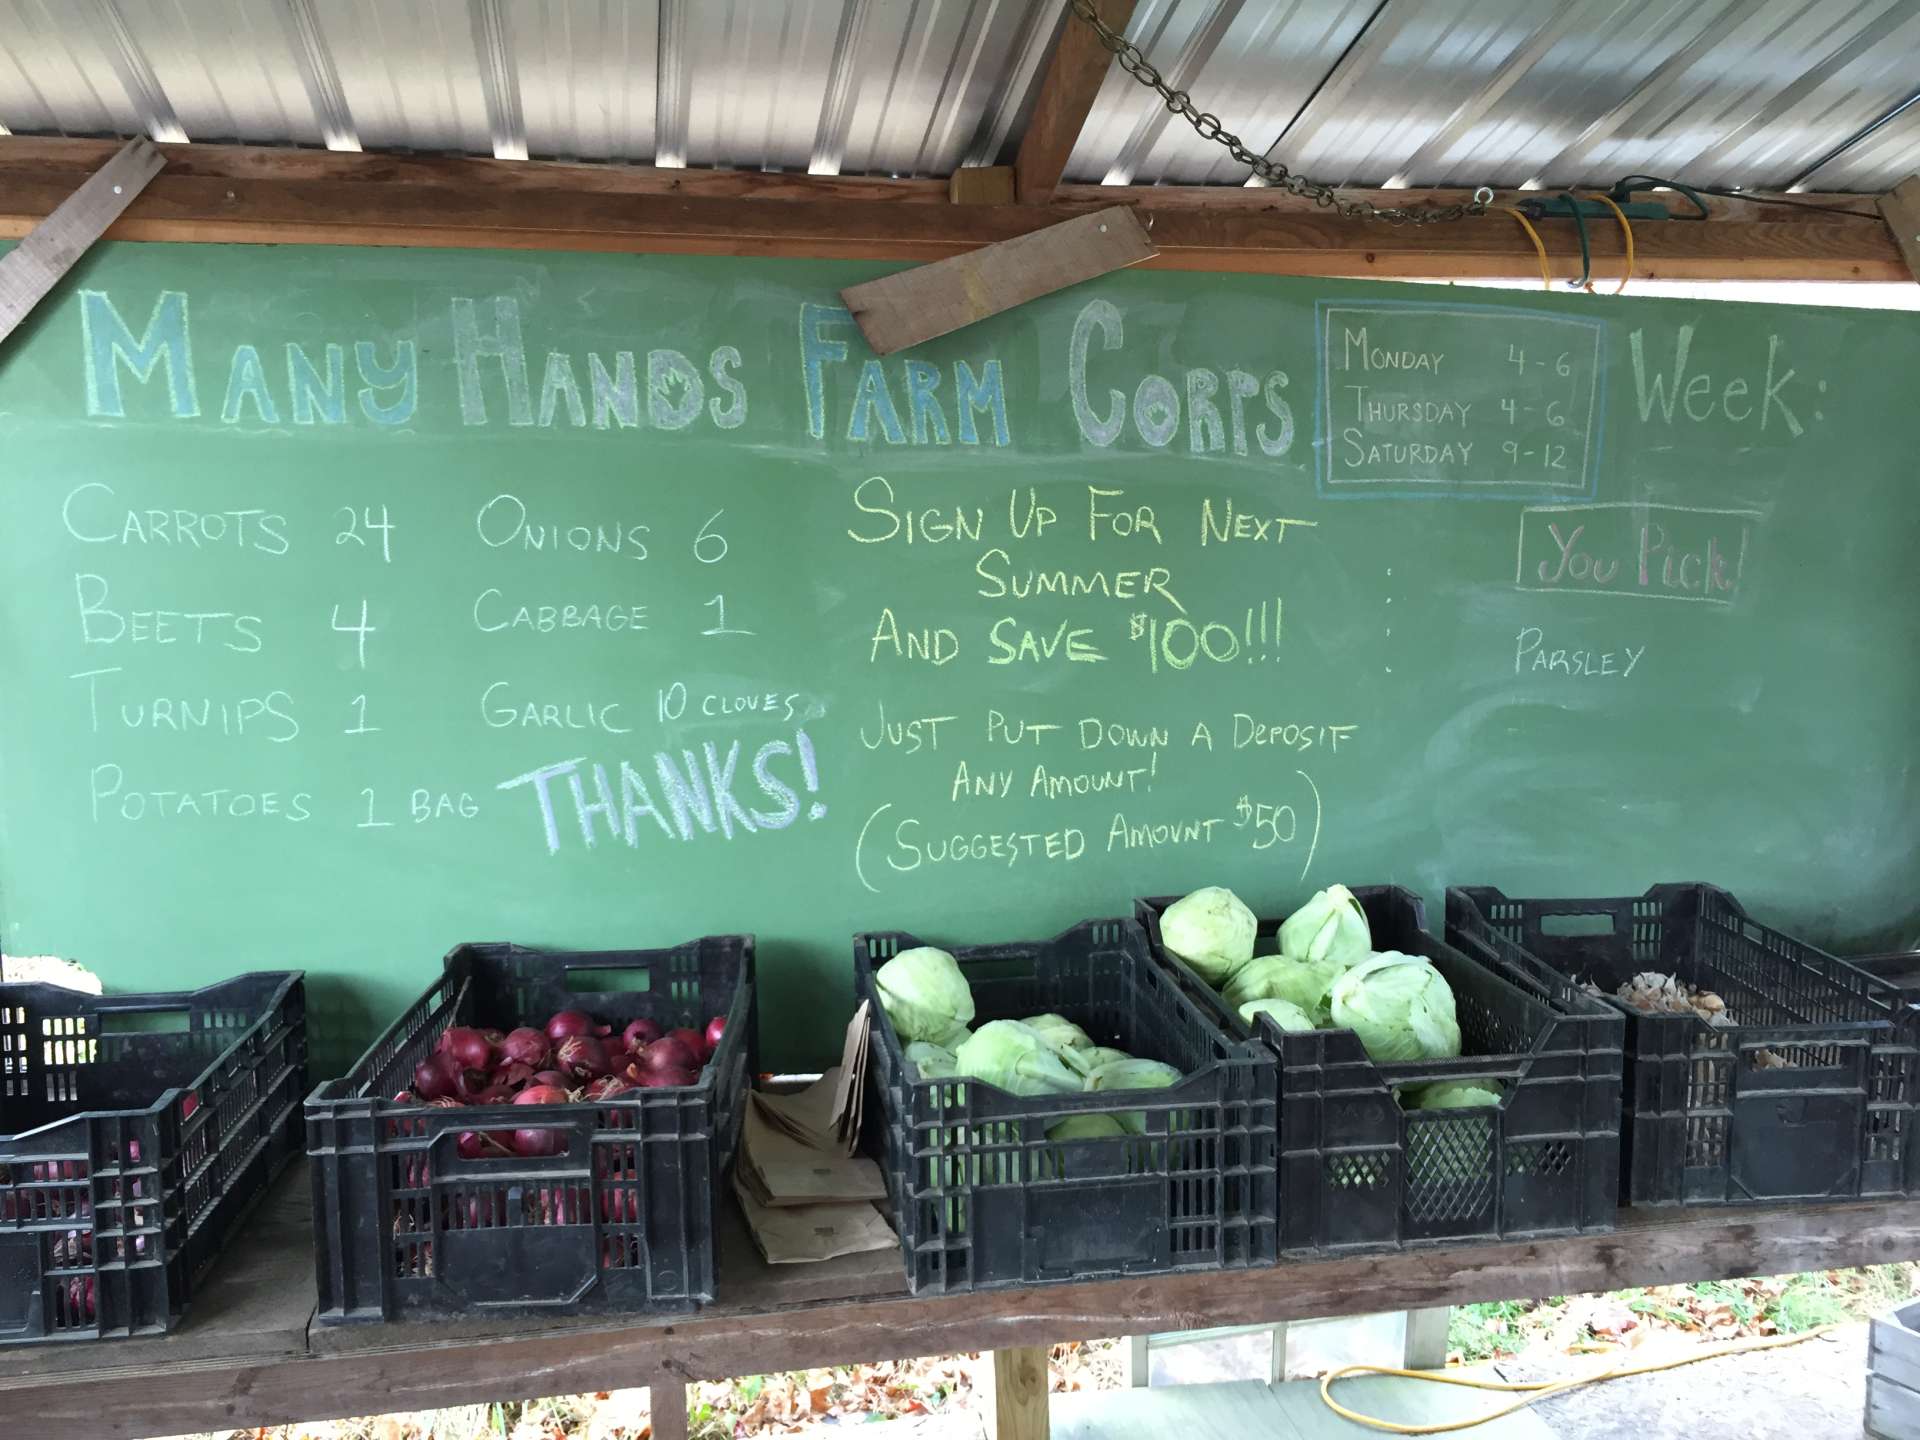 MANY HANDS FARM CORPS
MONDAY 4-6
THURSDAY 4-6
SATURDAY 9-12
Week:
CARROTS 24
BEETS 4
TURNIPS 1
POTATOES 1 BAG
ONIONS 6
CABBAGE 1
GARLIC 10 CLOVES
THANKS!
SIGN UP FOR NEXT
SUMMER
AND SAVE $100!!!
JUST PUT DOWN A DEPOSIT
ANY AMOUNT!
(SUGGESTED AMOUNT $50)
You Pick!
PARSLEY